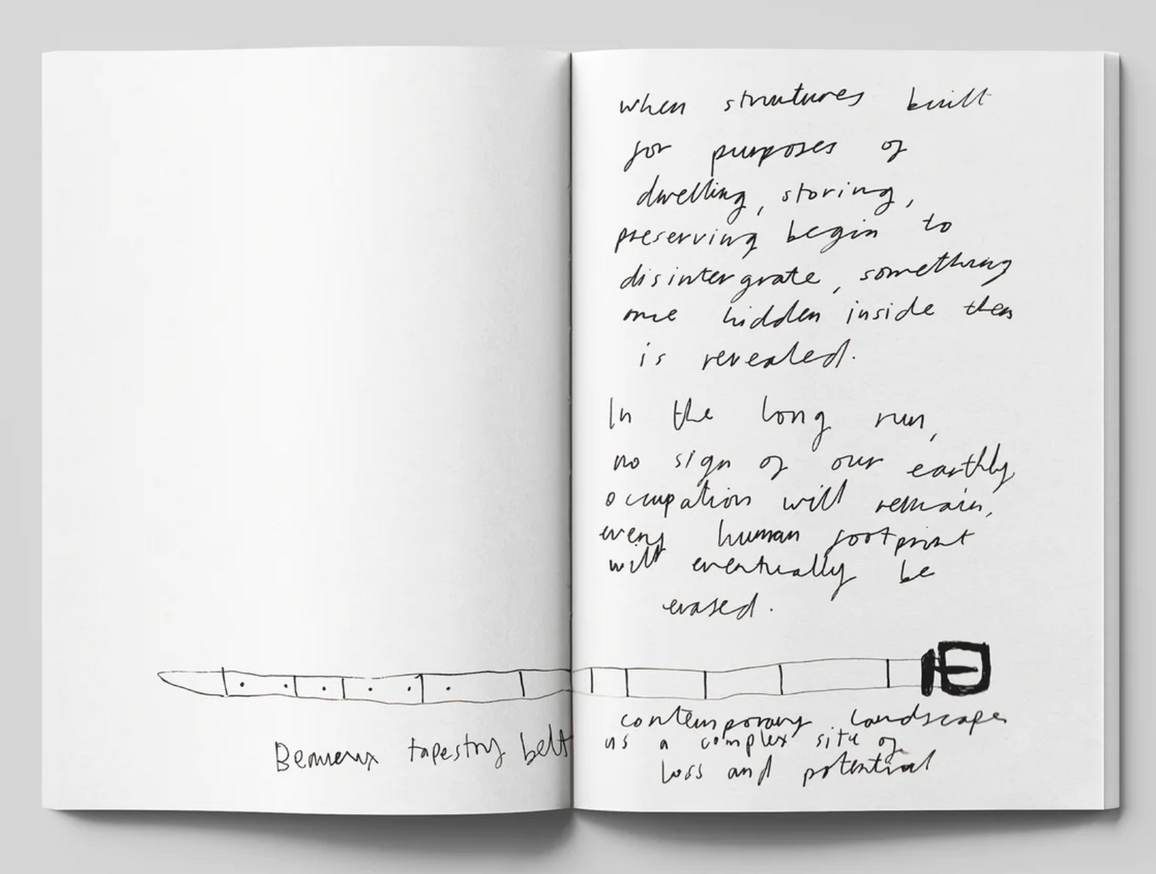 when structures built
for purposes of
dwelling, storing,
preserving begin to
disintergrate, something
once hidden inside them
is revealed.
In the long run,
no sign of our earthly
occupation will remain,
every human footprint
will eventually be
erased.
tapestry belt
contemporary landscapes
as a complex site of
loss and potential